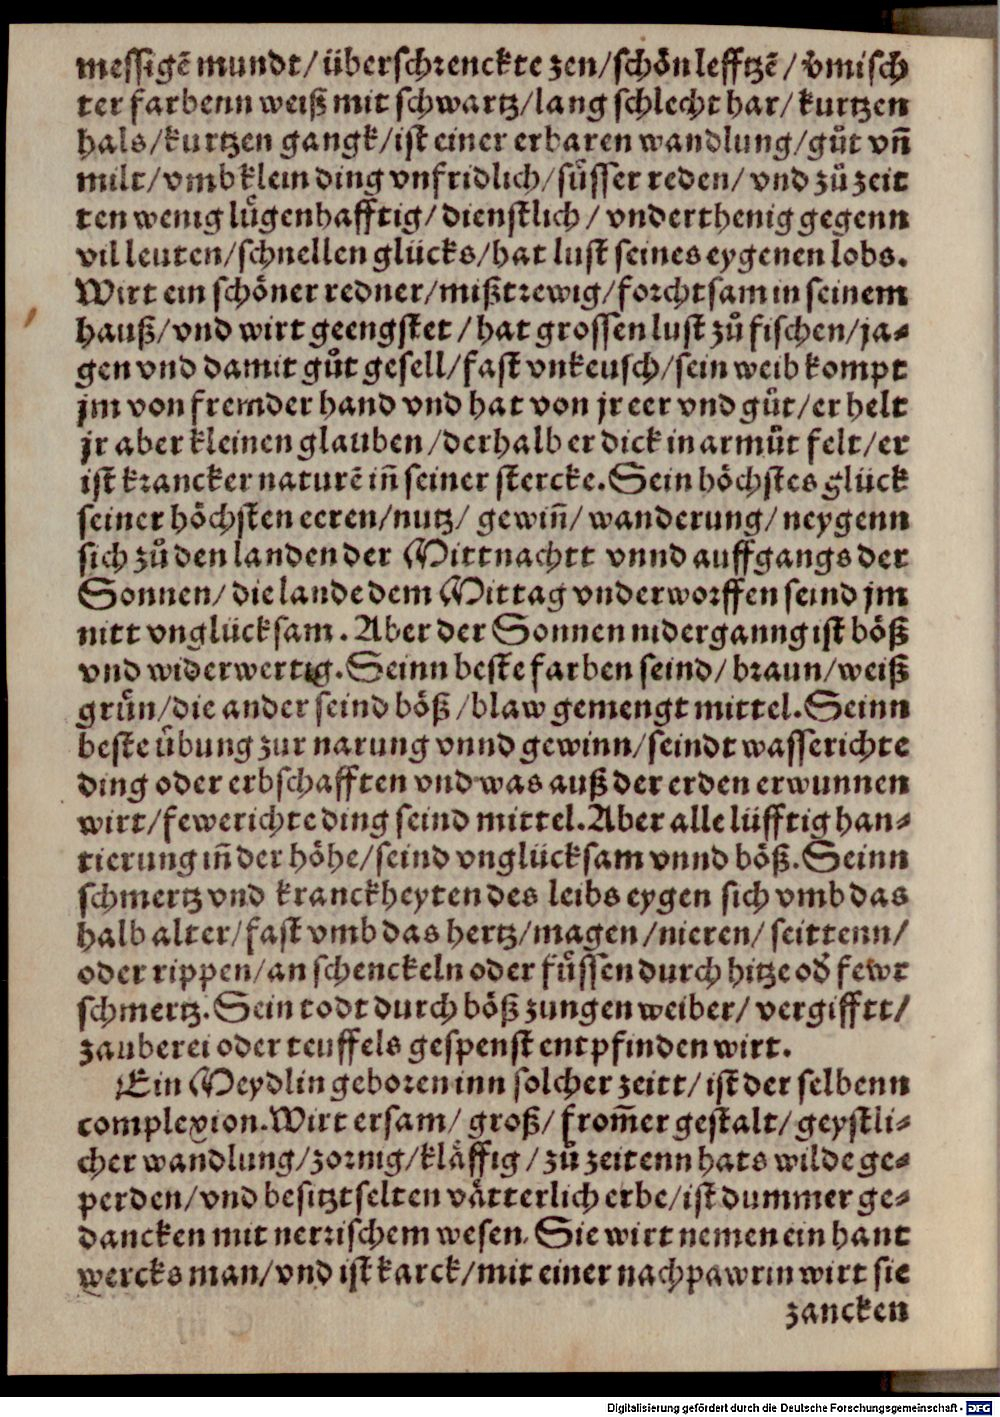 messigē mundt/ überschrenckte zen/schön lefftzē/ vͦmisch
ter farbenn weiß mit schwartz/lang schlecht har/ kurtzen
hals/kurtzen gangk/ist einer erbaren wandlung/gůt vñ
milt/vmb klein ding vnfridlich/süsser reden/ vnd zů zeit
ten wenig lügenhafftig/ dienstlich/ vnderthenig gegenn
vil leuten/schnellen glücks/hat lust seines eygenen lobs.
Wirt ein schöner redner/mißtrewig/forchtsam in seinem
hauß/vnd wirt geengstet/hat grossen lust zů fischen/ja-
gen vnd damit gůt gesell/fast vnkeusch/sein weib kompt
jm von fremder hand vnd hat von jr eer vnd gůt/er helt
jr aber kleinen glauben/derhalb er dick in armůt felt/er
ist krancker naturē iñ seiner stercke. Sein höchstes glück
seiner höchsten eeren/nutz/ gewiñ/wanderung/neygenn
sich zů den landen der Mittnachtt vnnd auffgangs der
Sonnen/ die lande dem Mittag vnderworffen seind jm
nitt vnglücksam. Aber der Sonnen niderganng ist böß
vnd widerwertig. Seinn beste farben seind/ braun/weiß
grün/die ander seind böß/blaw gemengt mittel. Seinn
beste übung zur narung vnnd gewinn/seindt wasserichte
ding oder erbschafften vnd was auß der erden erwunnen
wirt/fewerichte ding seind mittel. Aber alle lüfftig han-
tierung iñ der höhe/seind vnglücksam vnnd böß. Seinn
schmertz vnd kranckheyten des leibs eygen sich vmb das
halb alter/fast vmb das hertz/magen/nieren/ seittenn/
oder rippen/an schenckeln oder füssen durch hitze od̓ fewr
schmertz. Sein todt durch böß zungen weiber/ vergifftt/
zauberei oder teuffels gespenst entpfinden wirt.
Ein Meydlin geboren inn solcher zeitt/ist der selbenn
complexion. Wirt ersam/ groß/ from̄er gestalt/ geystli-
cher wandlung/zornig/kläffig/zů zeitenn hats wilde ge-
perden/vnd besitzt selten vätterlich erbe/ist dummer ge-
dancken mit nerrischem wesen. Sie wirt nemen ein hant
wercks man/vnd ist karck/mit einer nachpawrin wirt sie
zancken
Digitalisierung gefördert durch die Deutsche Forschungsgemeinschaft - DFG